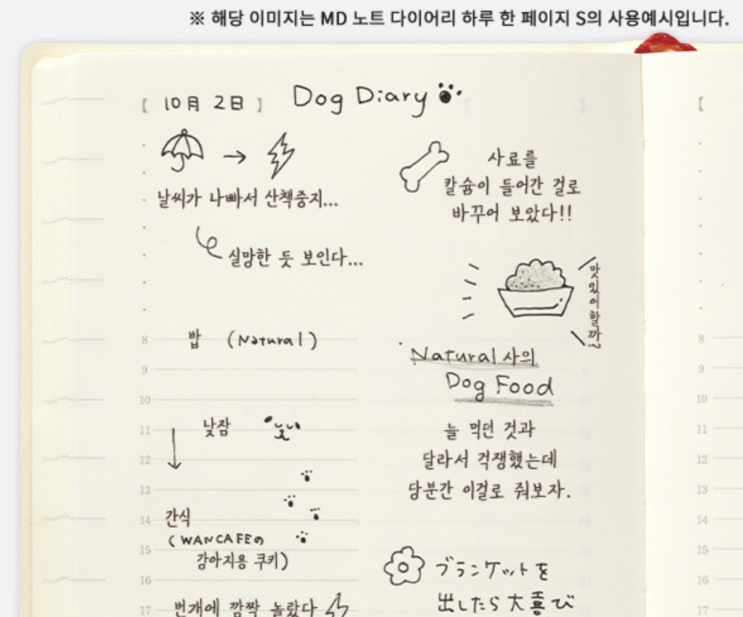 ※ 해당 이미지는 MD 노트 다이어리 하루 한 페이지 S의 사용예시입니다.
【 10月 2日 】 Dog Diary
날씨가 나빠서 산책중지...
실망한 듯 보인다...
8 밥 (Natural)
9
10
11 낮잠
12
13
14 간식
(WANCAFEの
15 강아지용 쿠키)
16
17 번개에 깜짝 놀랐다
사료를
칼슘이 들어간 걸로
바꾸어 보았다!!
맛있어할까?
Natural사의
Dog Food
늘 먹던 것과
달라서 걱쟁했는데
당분간 이걸로 줘보자.
ブランケットを
出したら大喜び
【
8
9
10
11
12
13
14
15
16
17